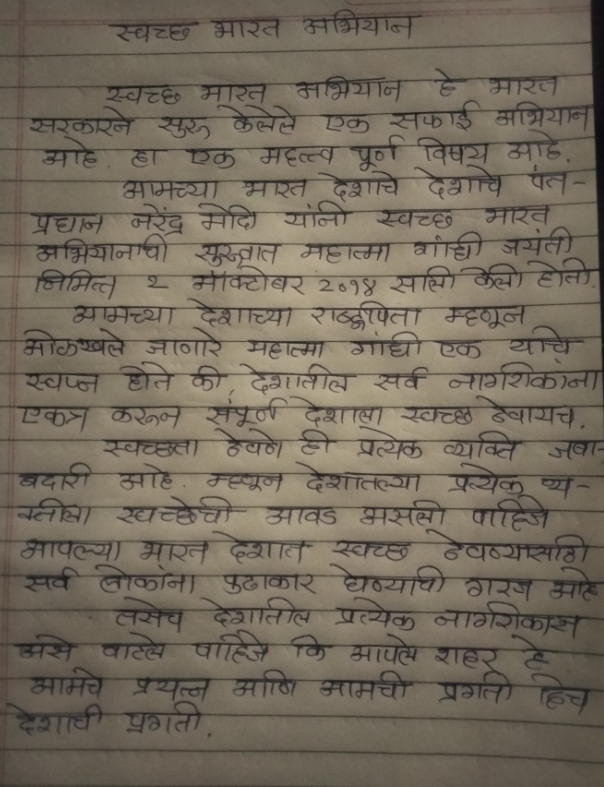 स्वच्छ भारत अभियान
स्वच्छ भारत अभियान हे भारत
सरकारने सुरू केलेले एक सफाई अभियान
आहे. हा एक महत्त्व पूर्ण विषय आहे.
आमच्या भारत देशाचे देशाचे पंत-
प्रधान नरेंद्र मोदी यांनी स्वच्छ भारत
अभियानाची सुरुवात महात्मा गांधी जयंती
निमित्त २ ऑक्टोबर २०१४ साली केली होती.
आमच्या देशाच्या राष्ट्रपिता म्हणून
ओळखले जाणारे महात्मा गांधी एक यांचे
स्वप्न होते की, देशातील सर्व नागरिकांना
एकत्र करून संपूर्ण देशाला स्वच्छ ठेवायच.
स्वच्छता ठेवणे ही प्रत्येक व्यक्ति जबा-
बदारी आहे. म्हणून देशातल्या प्रत्येक व्य-
क्तीला स्वच्छेची आवड असली पाहिजे
आपल्या भारत देशात स्वच्छ ठेवण्यासाठी
सर्व लोकांना पुढाकार घेण्याची गरज आहे
तसेच देशातील प्रत्येक नागरिकास
असे वाटले पाहिजे कि आपले शहर हे
आमचे प्रयत्न आणि आमची प्रगती हिच
देशाची प्रगती.